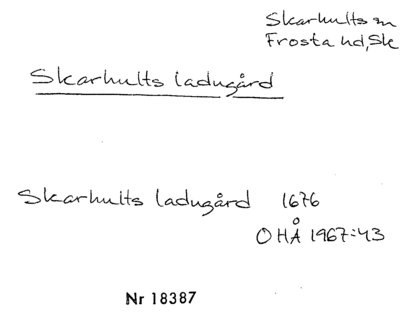 Skarhults sn
Frosta hd, Sk
Skarhults ladugård
Skarhults ladugård 1676
OHÅ 1967:43
Nr 18387